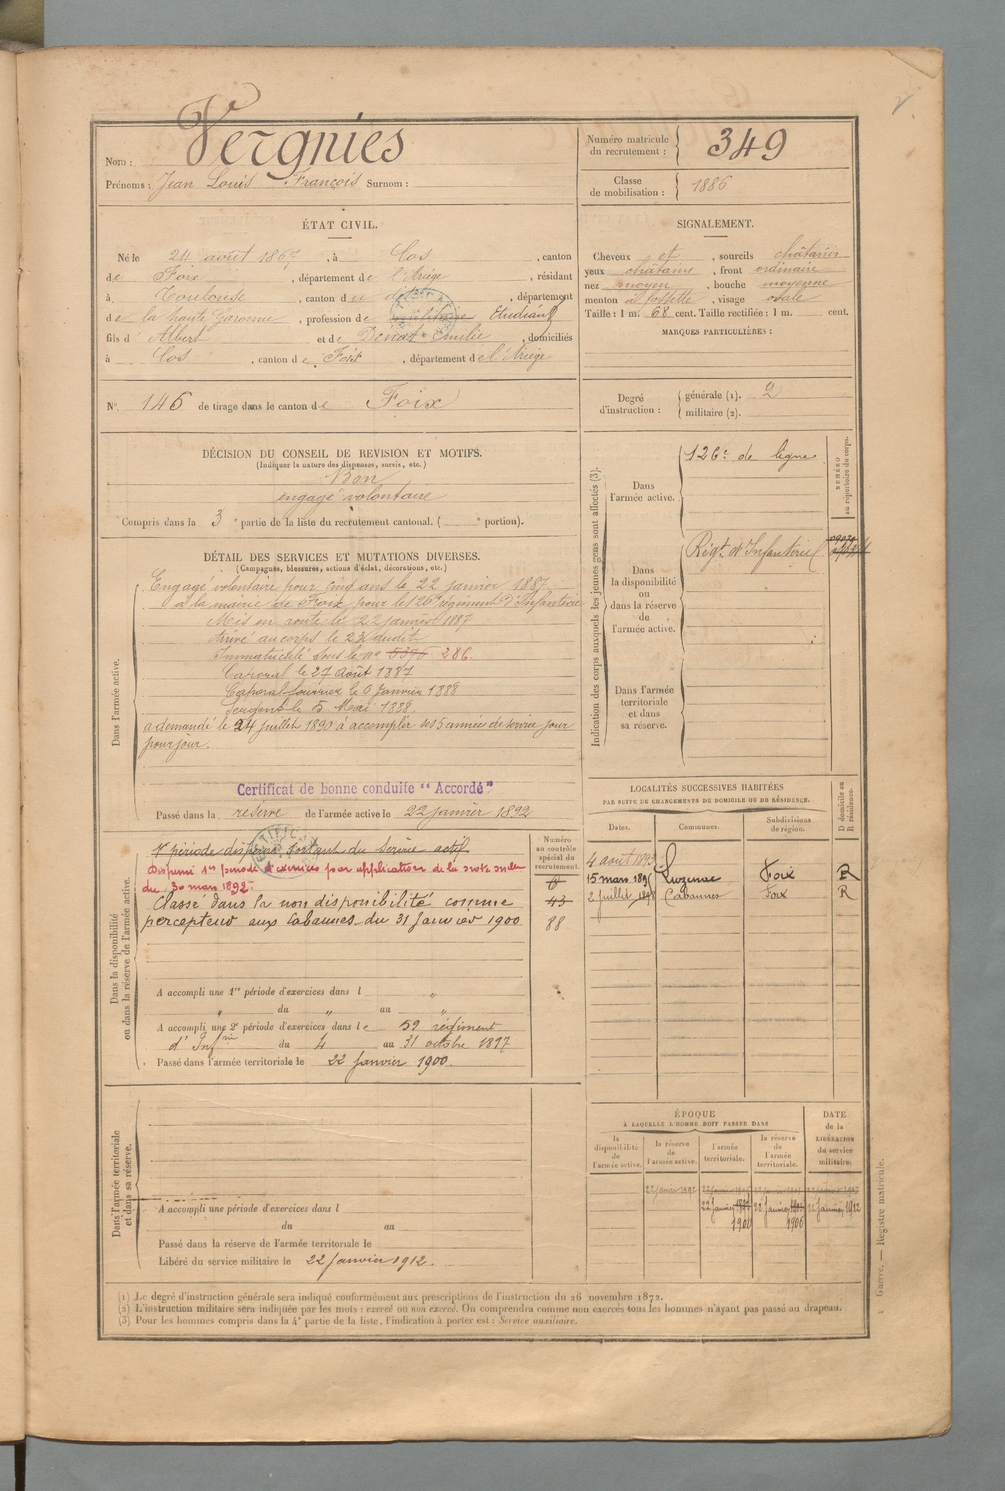 Nom : Vergnies
Prénoms : Jean Louis François Surnom :
Numéro matricule du recrutement : 349
Classe de mobilisation : 1886
ÉTAT CIVIL.
Né le 24 août 1867, à Cos, canton
de Foix, département de l'Ariège, résidant
à Toulouse, canton du dit, département
de la haute Garonne, profession de Etudiant
fils d Albert et de Dénat Emilie, domiciliés
à Cos, canton de Foix, département de l'Ariège
N° 146 de tirage dans le canton de Foix
SIGNALEMENT.
Cheveux et, sourcils châtains
yeux châtains, front ordinaire
nez moyen, bouche moyenne
menton à fossette, visage ovale
Taille : 1 m. 68 cent. Taille rectifiée : 1 m. cent.
MARQUES PARTICULIÈRES :
Degré d'instruction :
générale (1). 2
militaire (2).
DÉCISION DU CONSEIL DE REVISION ET MOTIFS.
(Indiquer la nature des dispenses, sursis, etc.)
Bon
engagé volontaire
Compris dans la 3e partie de la liste du recrutement cantonal. ( e portion).
DÉTAIL DES SERVICES ET MUTATIONS DIVERSES.
(Campagnes, blessures, actions d'éclat, décorations, etc.)
Dans l'armée active.
Engagé volontaire pour cinq ans le 22 janvier 1887
à la mairie de Foix pour le 126e régiment d'Infanterie
Mis en route le 22 janvier 1887
Arrivé au corps le 23 dudit
Immatriculé sous le n° 5376 286.
Caporal le 27 Août 1887
Caporal-fourrier le 6 Janvier 1888
Sergent le 5 Mai 1888
a demandé le 24 juillet 1890 à accomplir ses 5 années de service jour
pour jour.
Certificat de bonne conduite "Accordé"
Passé dans la réserve de l'armée active le 22 janvier 1892
Indication des corps auxquels les jeunes gens sont affectés (3).
NUMÉRO au répertoire du corps.
Dans l'armée active.
126e de ligne
Dans la disponibilité ou dans la réserve de l'armée active.
Régt d'Infanterie
Dans l'armée territoriale et dans sa réserve.
Dans la disponibilité ou dans la réserve de l'armée active.
Numéro au contrôle spécial du recrutement.
1e période dispensé sortant du service actif
Dispensé 1ère période d'exercices par application de la note mlle
du 30 mars 1892.
Classé dans la non disponibilité comme
percepteur aux Cabannes du 31 Janvier 1900
43
88
A accompli une 1re période d'exercices dans l "
" du " au "
A accompli une 2e période d'exercices dans le 59 régiment
d'Infrie du 4 au 31 octobre 1897
Passé dans l'armée territoriale le 22 Janvier 1900.
LOCALITÉS SUCCESSIVES HABITÉES
PAR SUITE DE CHANGEMENTS DE DOMICILE OU DE RÉSIDENCE.
Dates. Communes. Subdivisions de région. D domicile ou R résidence.
4 août 1893
15 mars 1895 Luzenac Foix R
2 juillet 1898 Cabannes Foix R
Dans l'armée territoriale et dans sa réserve.
A accompli une période d'exercices dans l
du au
Passé dans la réserve de l'armée territoriale le
Libéré du service militaire le 22 Janvier 1912.
ÉPOQUE
À LAQUELLE L'HOMME DOIT PASSER DANS
la disponibilité de l'armée active. la réserve de l'armée active. l'armée territoriale. la réserve de l'armée territoriale. DATE de la LIBÉRATION du service militaire.
22 janvier 1892
22 janvier 1900
22 janvier 1906
22 janvier 1912
(1) Le degré d'instruction générale sera indiqué conformément aux prescriptions de l'instruction du 26 novembre 1872.
(2) L'instruction militaire sera indiquée par les mots : exercé ou non exercé. On comprendra comme non exercés tous les hommes n'ayant pas passé au drapeau.
(3) Pour les hommes compris dans la 4e partie de la liste, l'indication à porter est : Service auxiliaire.
Guerre. — Registre matricule.